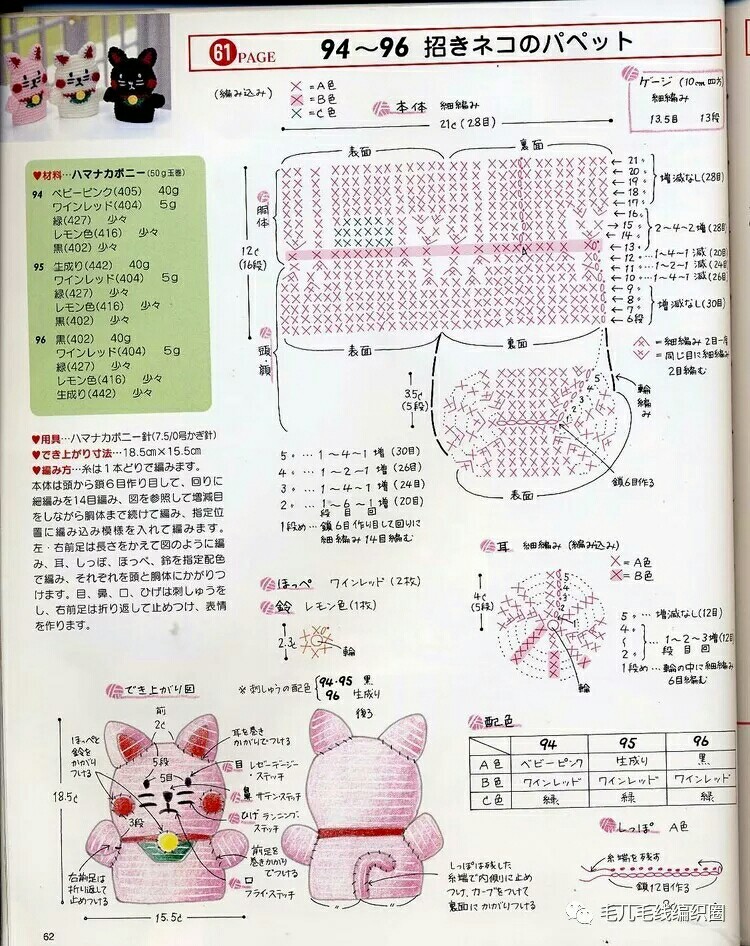 61 PAGE
94～96 招きネコのパペット
(編み込み)
×=A色
×=B色
×=C色
本体 細編み
21c(28目)
ゲージ(10cm四方)
細編み
13.5目 13段
♥材料…ハマナカボニー(50g玉巻)
94 ベビーピンク(405) 40g
ワインレッド(404) 5g
緑(427) 少々
レモン色(416) 少々
黒(402) 少々
95 生成り(442) 40g
ワインレッド(404) 5g
緑(427) 少々
レモン色(416) 少々
黒(402) 少々
96 黒(402) 40g
ワインレッド(404) 5g
緑(427) 少々
レモン色(416) 少々
生成り(442) 少々
♥用具…ハマナカボニー針(7.5/0号かぎ針)
♥でき上がり寸法…18.5cm×15.5cm
♥編み方…糸は1本どりで編みます。
本体は頭から鎖6目作り目して、回りに
細編みを14目編み、図を参照して増減目
をしながら胴体まで続けて編み、指定位
置に編み込み模様を入れて編みます。
左・右前足は長さをかえて図のように編
み、耳、しっぽ、ほっぺ、鈴を指定配色
で編み、それぞれを頭と胴体にかがりつ
けます。目、鼻、口、ひげは刺しゅうを
し、右前足は折り返して止めつけ、表情
を作ります。
表面
裏面
胴体
12c
(16段)
頭・顔
21
20
19
18
17
増減なし(28目)
16
15
14
2～4～2増(28目)
13
12 …1～4～1減(20目)
11 …1～2～1減(24目)
10 …1～4～1減(26目)
9
8
7
6段
増減なし(30目)
表面
裏面
=細編み2目一度
=同じ目に細編み
2目編む
3.5c
(5段)
輪編み
5 4 3 2 1
鎖6目作る
表面
5 … 1～4～1増(30目)
4 … 1～2～1増(26目)
3 … 1～4～1増(24目)
2 … 1～6～1増(20目)
段 目 回
1段め…鎖6目作り目して回りに
細編み14目編む
ほっぺ ワインレッド(2枚)
鈴 レモン色(1枚)
2.3c
輪
耳 細編み(編み込み)
×=A色
×=B色
4c
(5段)
5 4 3 2 1
輪
5 … 増減なし(12目)
4
2
…1～2～3増(12目)
段 目 回
1段め…輪の中に細編み
6目編む
でき上がり図
※刺しゅうの配色
94・95 黒
96 生成り
前
2c
後ろ
ほっぺと
鈴を
かがり
つける
耳を巻き
かがりでつける
5段
5目
3段
目 レゼーデージー・
ステッチ
鼻 サテンステッチ
ひげ ランニング・
ステッチ
前足を
巻きかがり
でつける
口
フライ・ステッチ
右前足は
折り返して
止めつける
18.5c
15.5c
しっぽは残した
糸端で内側に止め
つけ、カーブをつけて
裏面にかがりつける
配色
94 95 96
A色 ベビーピンク 生成り 黒
B色 ワインレッド ワインレッド ワインレッド
C色 緑 緑 緑
しっぽ A色
糸端を残す
鎖12目作る
毛儿毛线编织圈
62